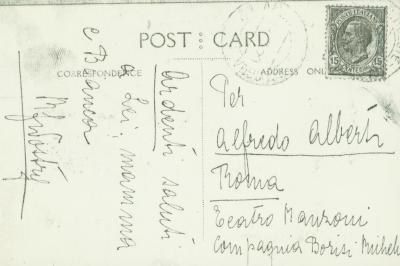 POST CARD
CORRESPONDENCE
ADDRESS ONL
POSTE ITALIANE
15 15
Ardenti saluti
a Lei, mamma
e Bianca
Per
Alfredo Alberti
Roma
Teatro Manzoni
Compagnia Borisi Micheli